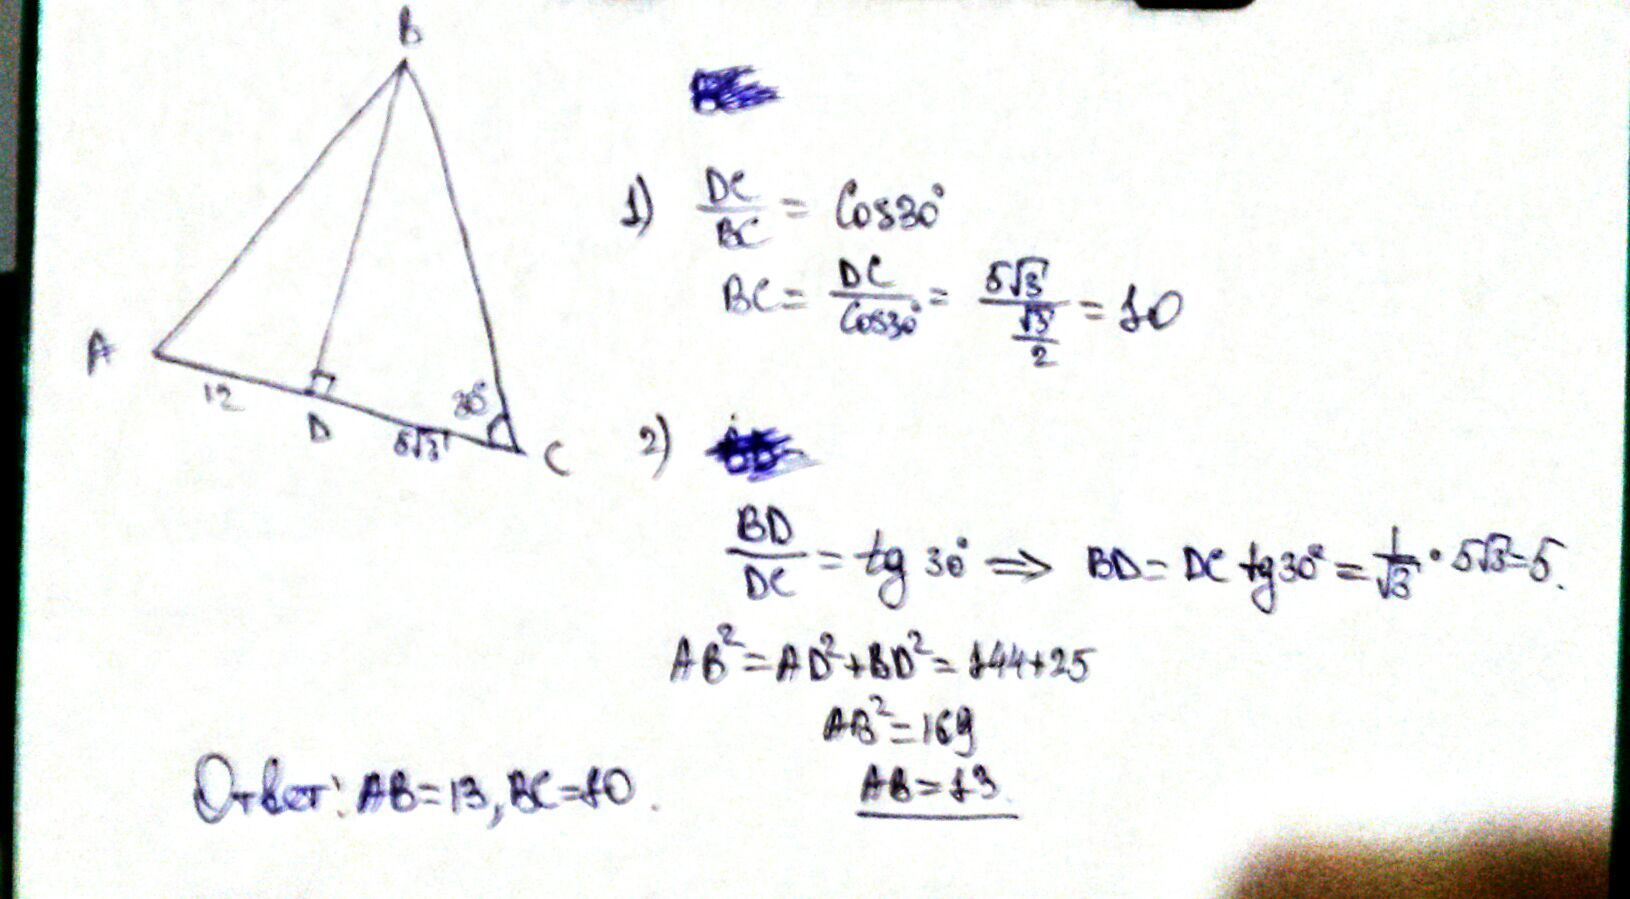 B
A
12
D
5√3
30°
C
1) DC/BC = Cos30°
BC = DC/Cos30° = 5√3/(√3/2) = 10
2)
BD/DC = tg 30° ⇒ BD = DC tg30° = 1/√3 · 5√3 = 5.
AB² = AD² + BD² = 144 + 25
AB² = 169
AB = 13.
Ответ: AB = 13, BC = 10.